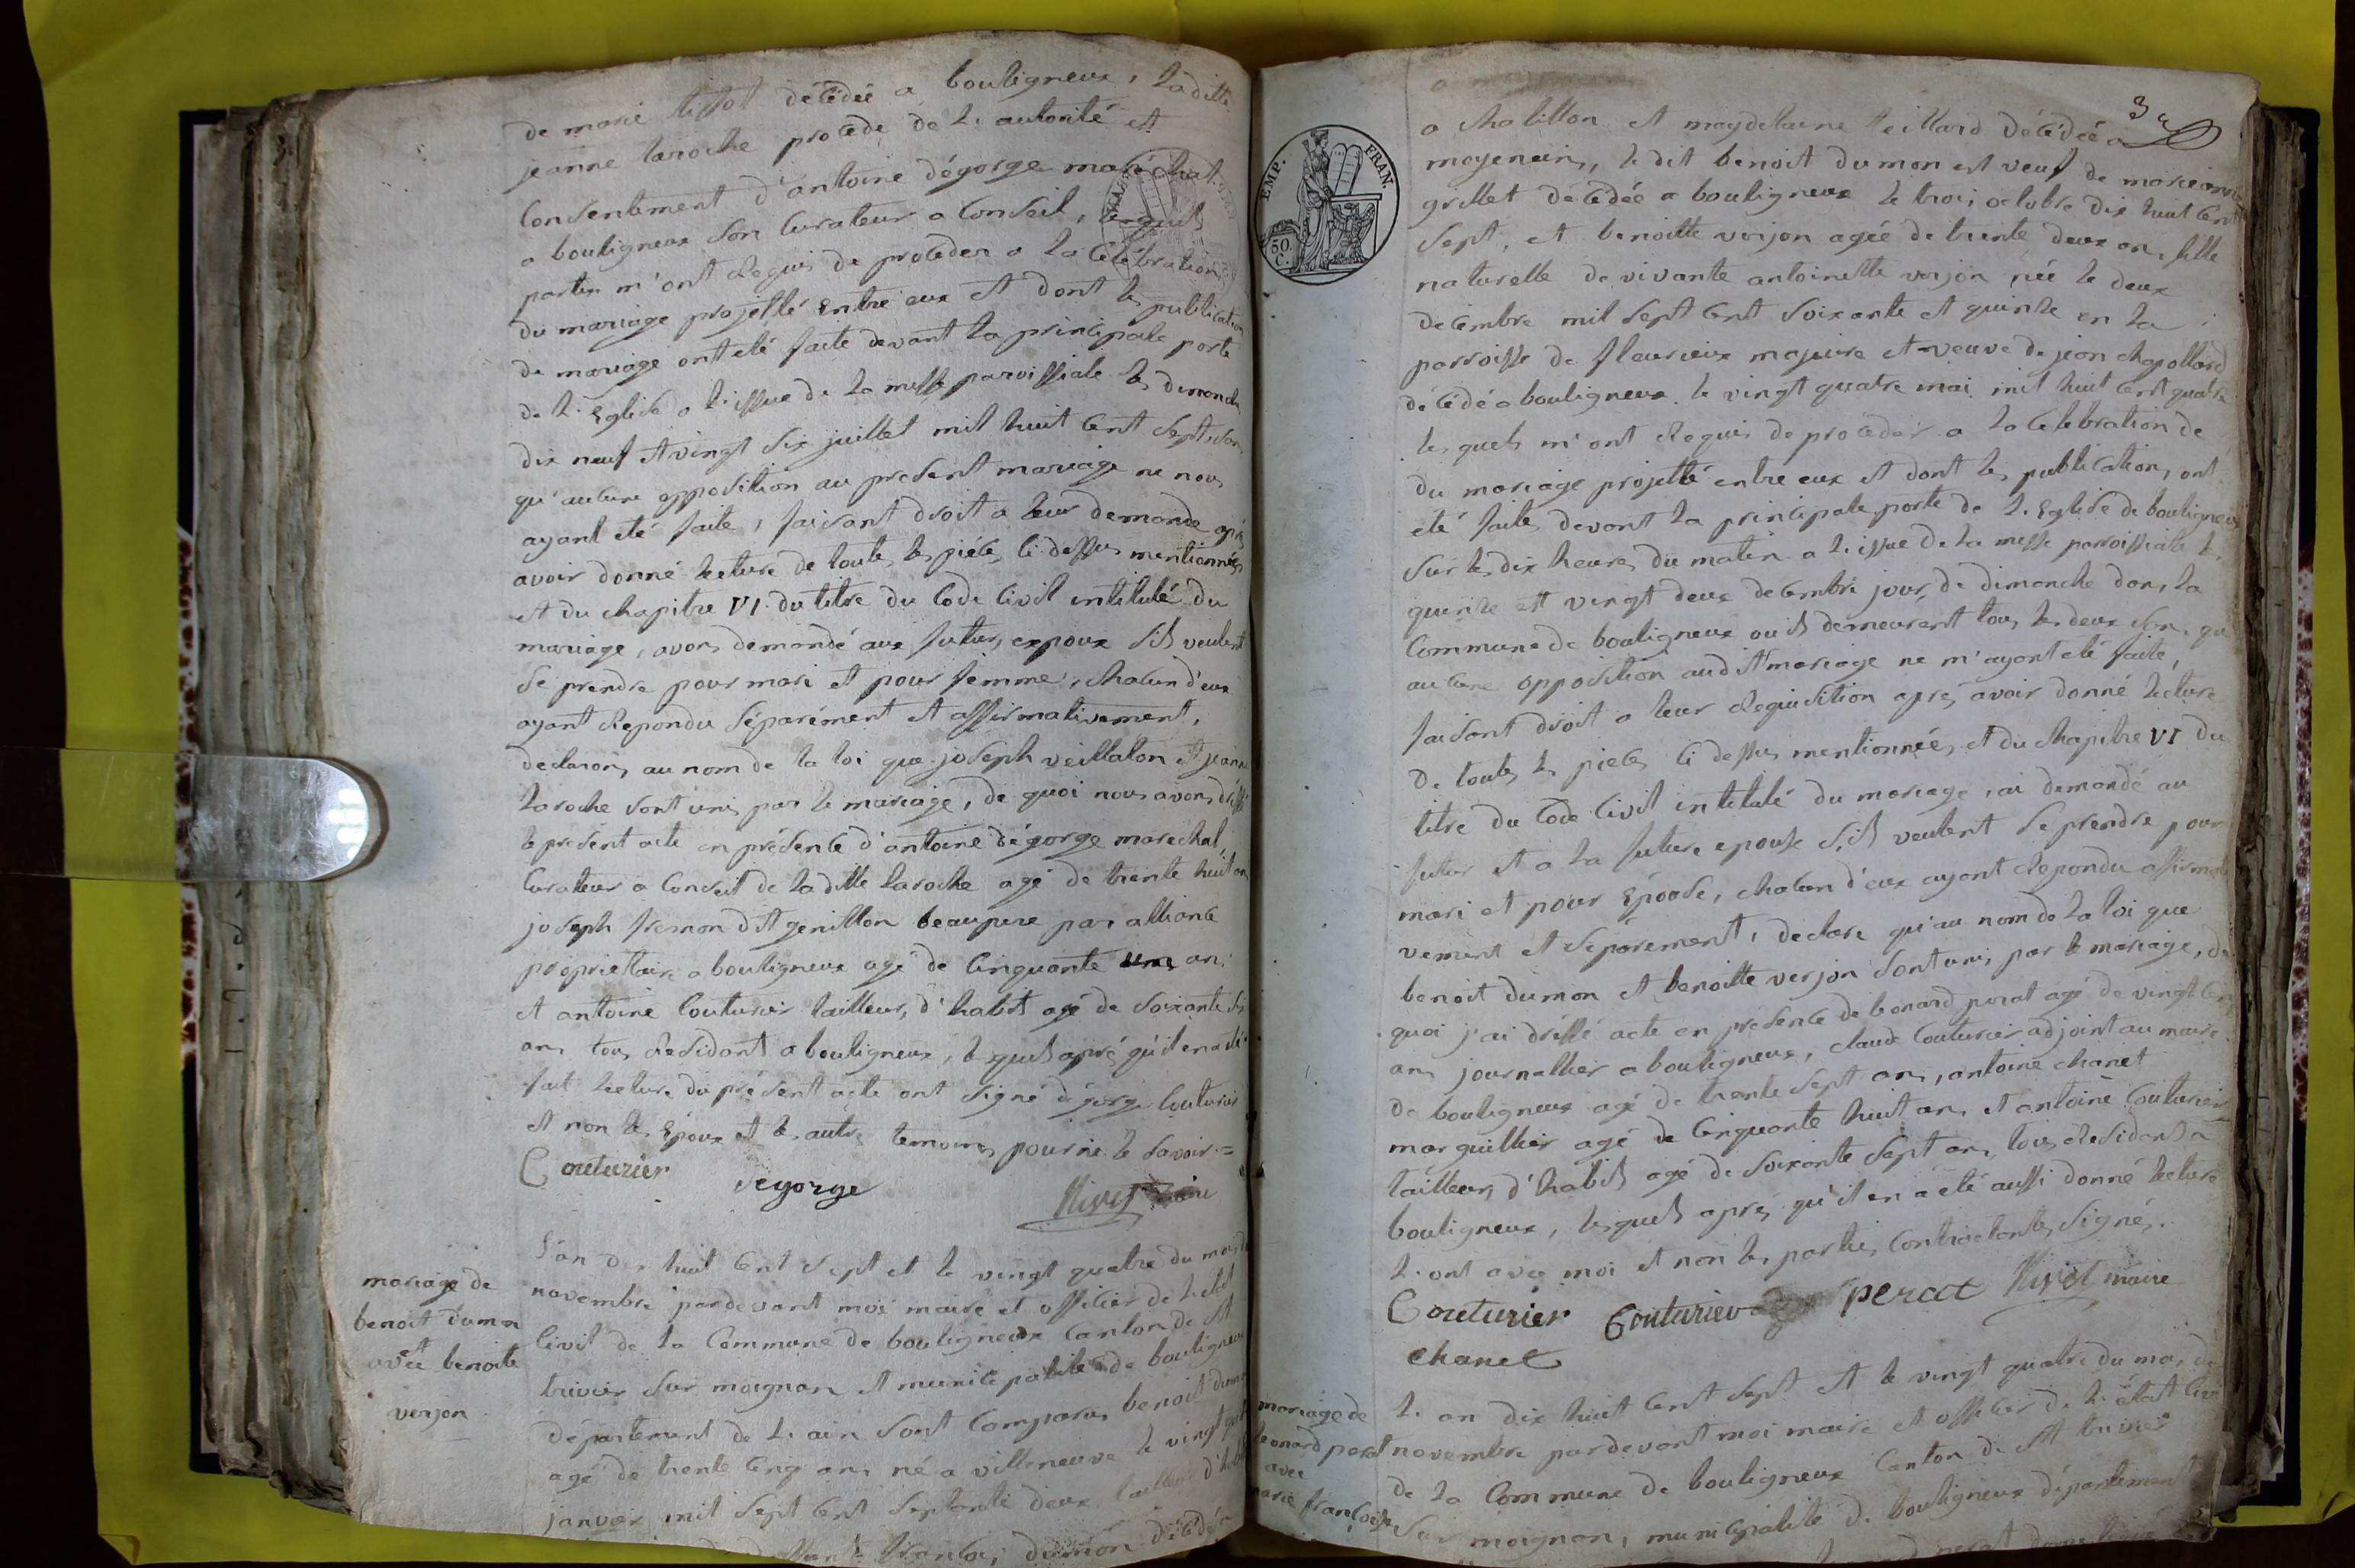 de marie tissot décédée a bouligneux, laditte
jeanne laroche procede de l. autorité et
Consentement d'antoine dégorge maréchal
a bouligneux son Curateur a Conseil, lesquels
parties m'ont Requis de proceder a la Célébration
du mariage projetté Entre eux et dont les publication
de mariage ont eté faite devant la principale porte
de l. Eglise a l. issue de la messe paroissiale les dimanche
dix neuf et vingt six juillet mil huit Cent sept, sans
qu'aucune opposition au present mariage ne nous
ayant eté faite, faisant droit a leur demande après
avoir donné lecture de toutes les piéces Ci dessus mentionnées
et du chapitre VI du titre du Code Civil intitulé du
mariage, avons demandé aux futurs expoux s'ils veulent
se prendre pour mari et pour femme, chacun d'eux
ayant Repondu séparément et affirmativement,
declarons au nom de la loi que joseph veillaton et jeanne
laroche sont unis par le mariage, de quoi nous avons dréssé
le present acte en présence d'antoine dégorge marechal,
Curateur a Conseil de la ditte laroche agé de trente huit ans
joseph fremon dit genillon beaupere par alliance
proprietaire a bouligneux agé de Cinquante un ans
et antoine Couturier tailleur, d'habit agé de soixante six
ans tous Residants a bouligneux, lesquels après qu'il en a été
fait lecture du présent acte ont signé dégorge Couturier
et non les Epoux et les autres temoins pour ne le savoir =
Couturier degorge Nivet maire
mariage de
benoit dumon
avec benoite
verjon
L'an dix huit Cent sept et le vingt quatre du mois de
novembre pardevant moi maire et officier de l. etat
Civil de la Commune de bouligneux Canton de St
trivier sur moignan et municipalité de bouligneux
departement de l. ain sont Comparus benoit dumon
agé de trente Cinq ans né a villeneuve le vingt
janvier mil sept Cent septante deux tailleur d'habit
dumon décédé
3
a chatillon et magdelaine teillard décédée a
moyeneins, le dit benoit dumon est veuf de marianne
grillet décédée a bouligneux le trois octobre dix huit Cent
sept, et benoitte verjon agée de trente deux ans fille
naturelle de vivante antoinette verjon née le deux
decembre mil sept Cent soixante et quinze en la
parroisse de fleurieux majeure et veuve de jean chapolland
décédé a bouligneux le vingt quatre mai mil huit Cent quatre
les quels m'ont Requis de proceder a la Celebration de
du mariage projetté entre eux et dont les publications ont
été faites devant la principale porte de l. Eglise de bouligneux
sur les dix heures du matin a l. issue de la messe parroissiale les
quinze et vingt deux decembre jours de dimanche dans la
Commune de bouligneux ou ils demeurent tous les deux sans qu
aucune opposition audit mariage ne m'ayant été faite,
faisant droit a leur Requisition après avoir donné lecture
de toutes les pieces Ci dessus mentionnées et du chapitre VI du
titre du Code Civil intitulé du mariage, ai demandé au
futur et a la future epouse s'ils veulent se prendre pour
mari et pour Epouse, chacun d'eux ayant Repondu affirmati
vement et séparement, declare qu'au nom de la loi que
benoit dumon et benoitte verjon sont unis par le mariage, de
quoi j'ai dréssé acte en présence de leonard perat agé de vingt
ans journallier a bouligneux, claude Couturier adjoint au maire
de bouligneux agé de trente sept ans, antoine chanet
marguillier agé de Cinquante huit ans et antoine Couturier
tailleur, d'habits agé de soixante sept ans tous Residants a
bouligneux, lesquels après qu'il en a été aussi donné lecture
l. ont avec moi et non les parties Contractantes signés.
Couturier Couturier perat Nivet maire
chanet
EMP. FRAN.
50. C.
mariage de
leonard perat
avec
marie françoise
L. an dix huit Cent sept et le vingt quatre du mois de
novembre pardevant moi maire et officier de l. état Civil
de la Commune de bouligneux Canton de St trivier
sur moignan, municipalité de bouligneux département